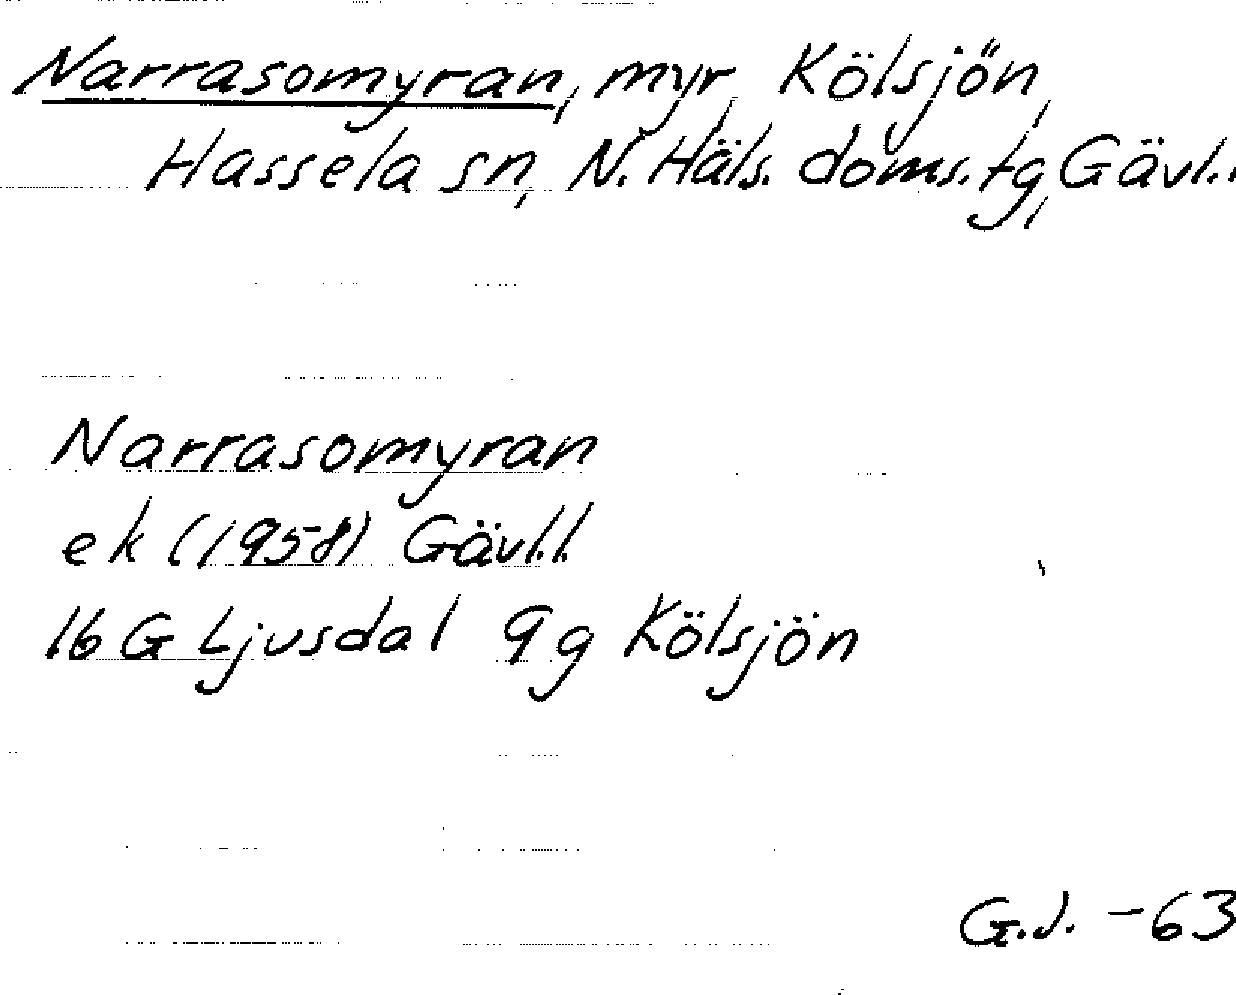 Narrasomyran, myr, Kölsjön,
Hassela sn, N. Häls. doms.tg, Gävl.l.
Narrasomyran
ek (1958) Gävl.l.
16 G Ljusdal 9g Kölsjön
G.J. -63